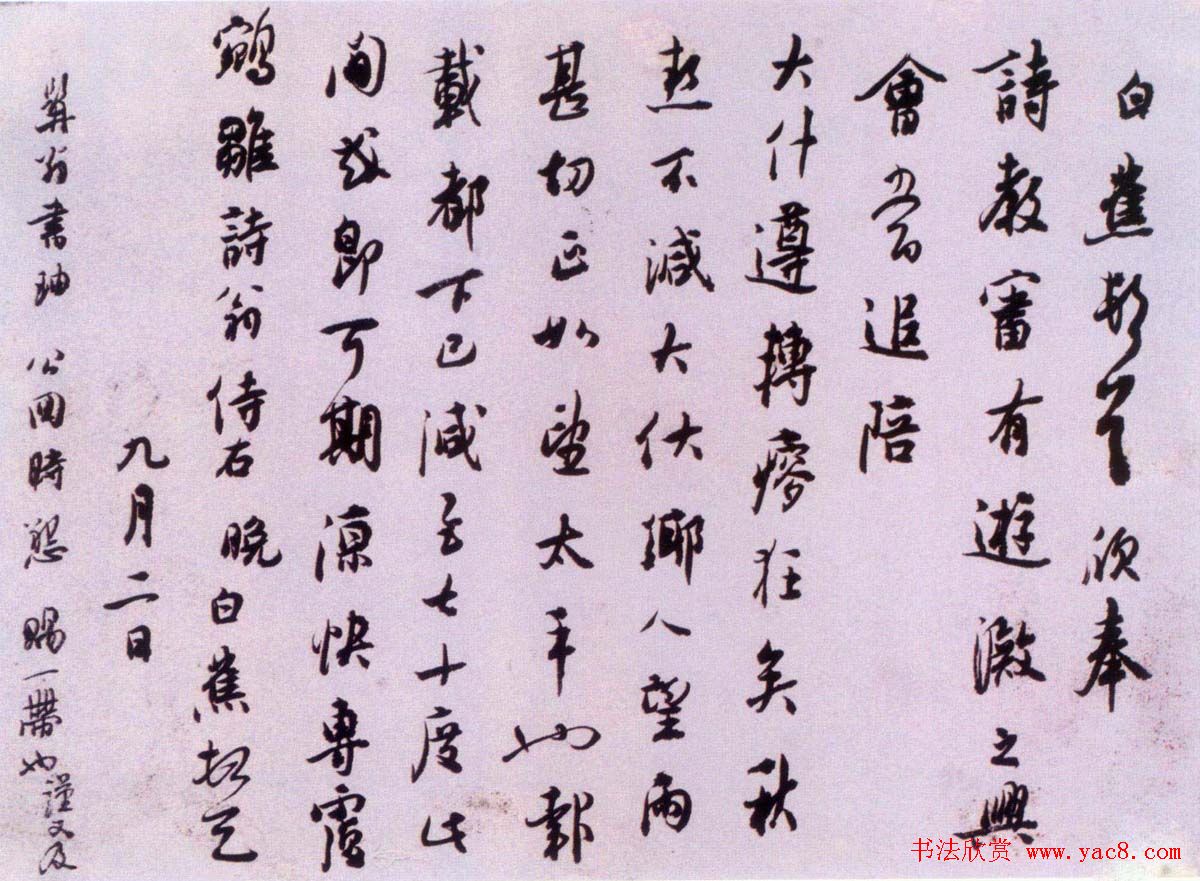 白蕉頓首欣奉
詩教審有遊激之興
會當追陪
大什遵轉瘳狂矣秋
熱不減大伏鄉人望雨
甚切正如望太平也報
載都下已減至七十度此
間或即可期涼快專覆
鵷雛詩翁侍右 晚白蕉拟之
九月二日
翁書 公回時懇 賜一帶也謹又及
书法欣赏 www.yac8.com